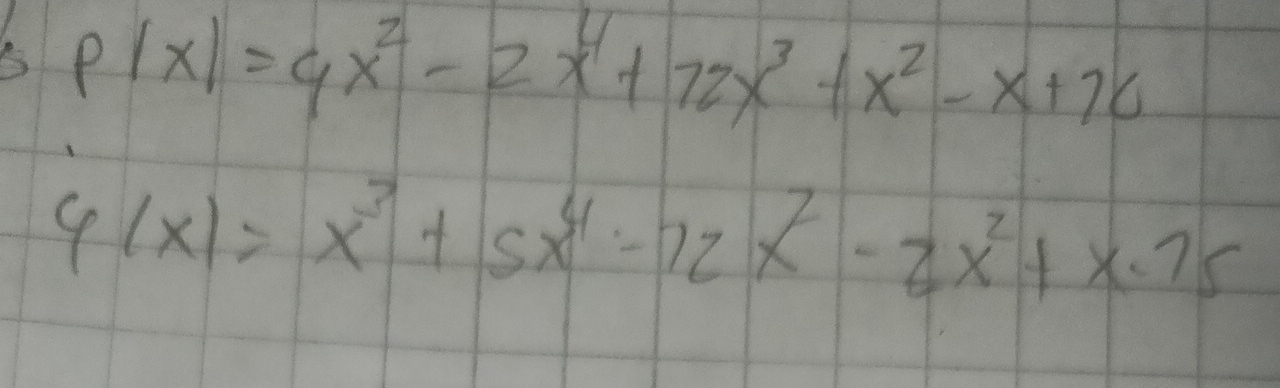 p(x)=4x²-2x⁴+12x³+x²-x+16
q(x)=x³+5x⁴-12x²-2x²+x-15